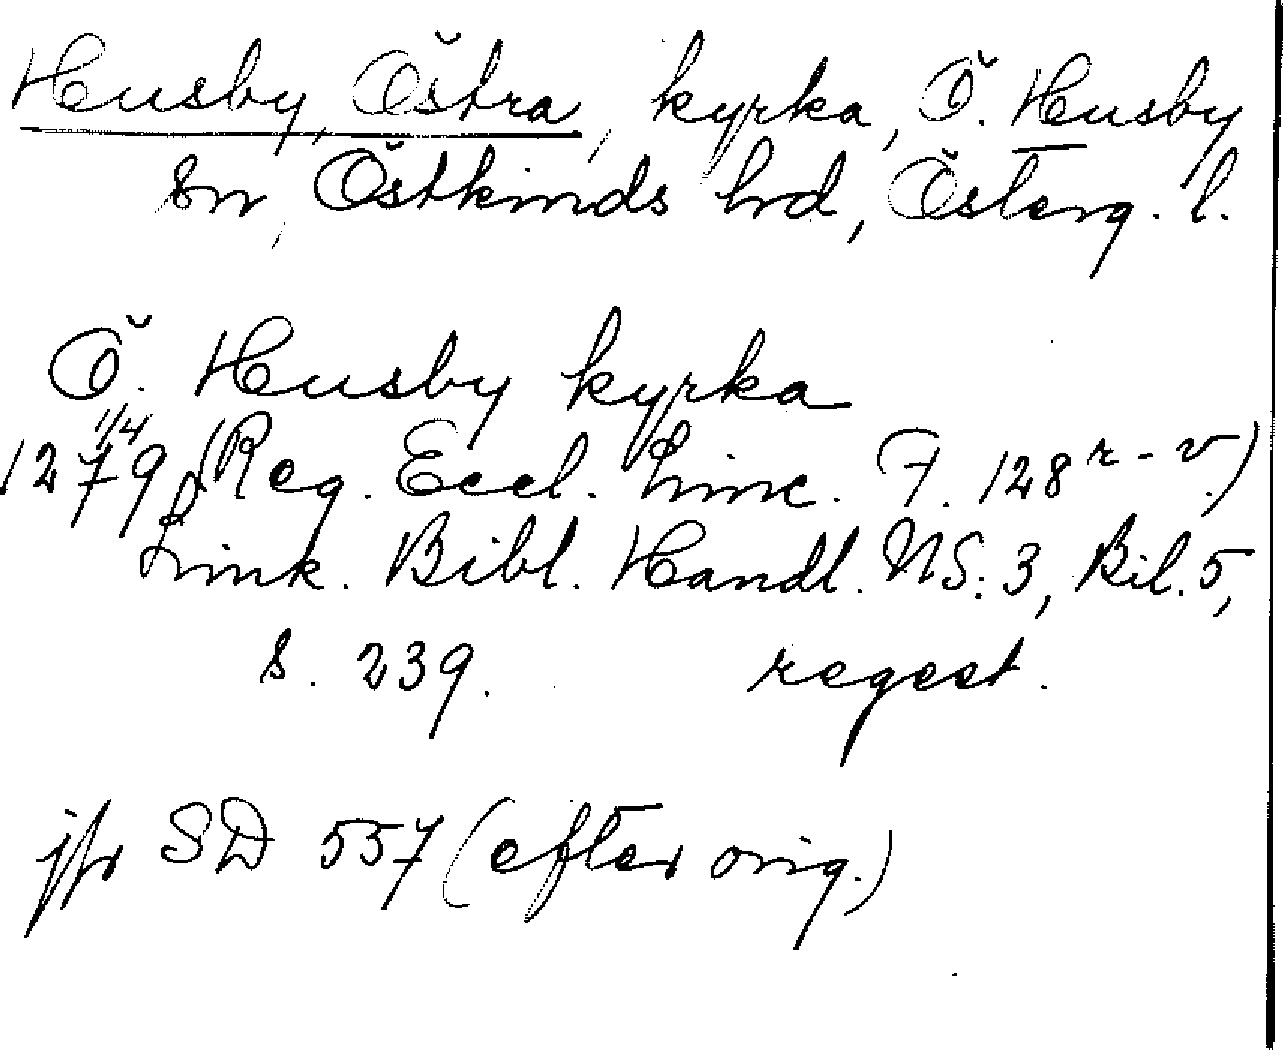 Husby, Östra, kyrka, Ö. Husby
sn, Östkinds hrd, Österg. l.
Ö. Husby kyrka
1279 1/4 (Reg. Eccl. Linc. F. 128 r-v)
Link. Bibl. Handl. NS: 3, Bil. 5,
s. 239. regest.
jfr SD 557 (efter orig.)